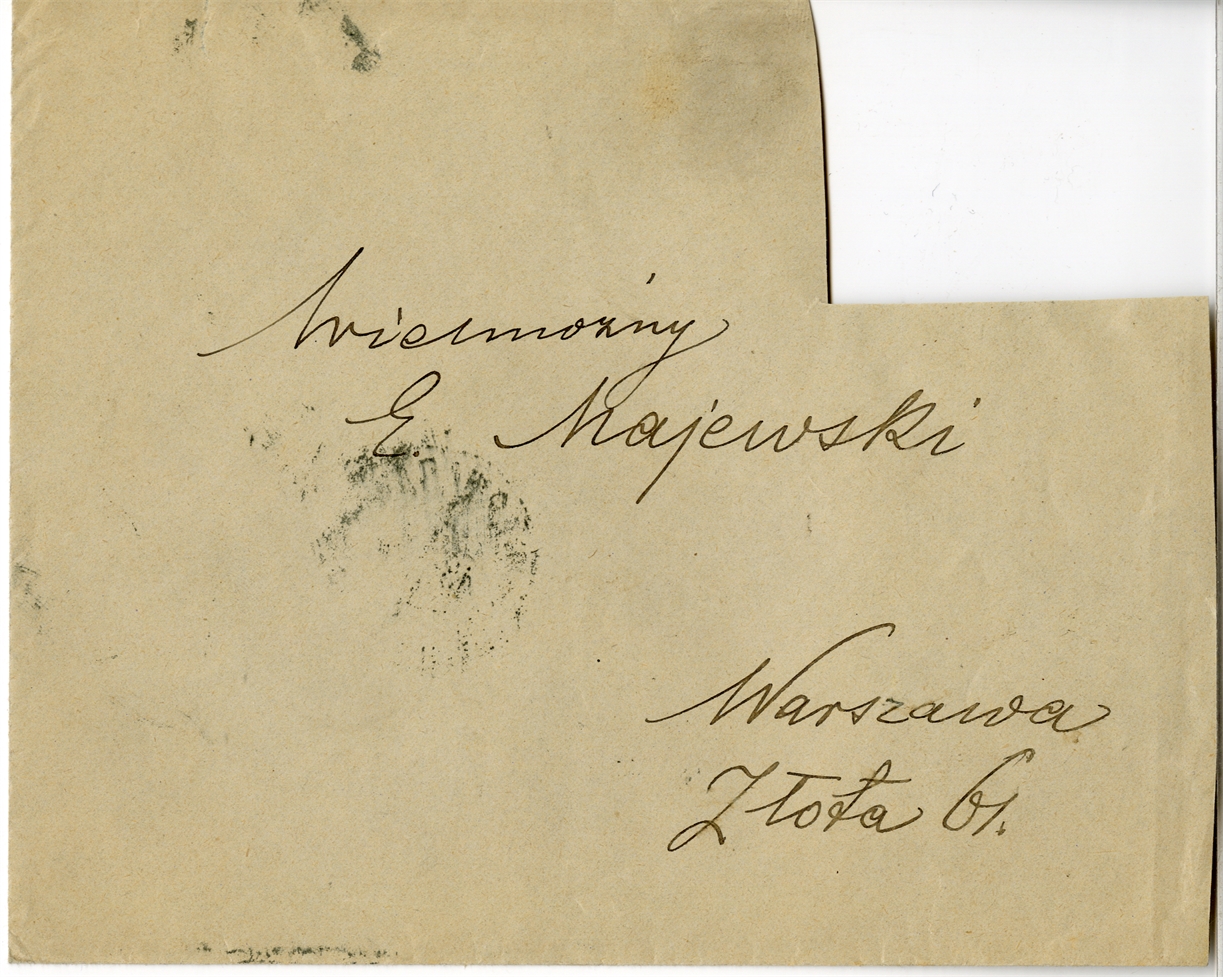 Wielmożny
E. Majewski
Warszawa
Złota 61.